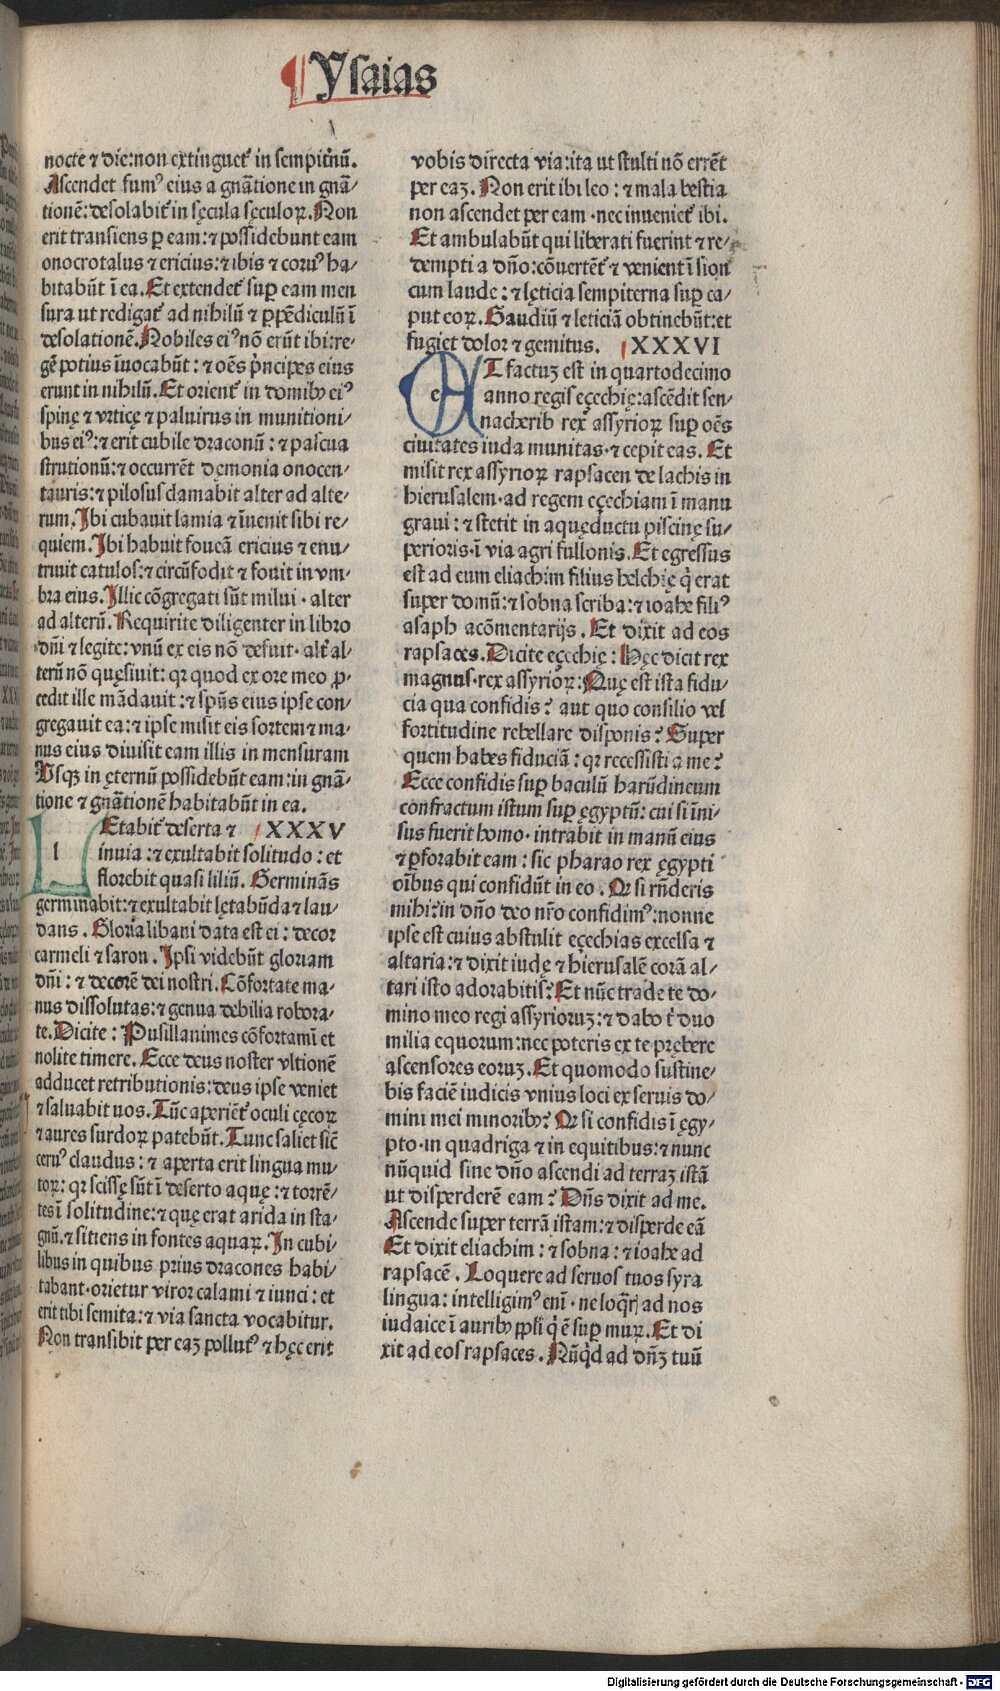 Ysaias
nocte ⁊ die:non extinguet᷒ in sempit̾nū.
Ascendet fumꝰ eius a gn̄atione in gn̄a/
tionē: desolabit᷒ in sęcula sęculoꝝ. Non
erit transiens ꝑ eam:⁊ possidebunt eam
onocrotalus ⁊ ericius:⁊ ibis ⁊ coruꝰ ha/
bitabūt ī ea. Et extendet᷒ suꝑ eam men
sura ut redigat᷒ ad nihilū ⁊ ꝑpēdiculū ī
desolationē. Nobiles eiꝰ nō erūt ibi:re/
gē potius īuocabūt : ⁊ oēs pͥncipes eius
erunt in nihilū. Et orient᷒ in domibꝫ eiꝰ
spinę ⁊ vrticę ⁊ paluirus in munitioni/
bus eiꝰ:⁊ erit cubile draconū : ⁊ pascua
strutionū:⁊ occurrēt dęmonia onocen/
tauris:⁊ pilosus clamabit alter ad alte/
rum. Ibi cubauit lamia ⁊ īuenit sibi re/
quiem. Ibi habuit foueā ericius ⁊ enu/
triuit catulos:⁊ circūfodit ⁊ fouit in vm/
bra eius. Illic cōgregati sūt milui · alter
ad alterū. Requirite diligenter in libro
dn̄i ⁊ legite: vnū ex eis nō defuit · alt̾ al/
terū nō quęsiuit: qꝛ quod ex ore meo ꝓ/
cedit ille mādauit : ⁊ spūs eius ipse con/
gregauit ea: ⁊ ipse misit eis sortem ⁊ ma/
nus eius diuisit eam illis in mensuram
Vsqꝫ in ęternū possidebūt eam: in gn̄a/
tione ⁊ gn̄ationē habitabūt in ea.
l Etabit᷒ deserta ⁊ XXXV
inuia : ⁊ exultabit solitudo : et
florebit quasi liliū. Germināns
germinabit:⁊ exultabit lętabūda ⁊ lau/
dans . Gloria libani data est ei : decor
carmeli ⁊ saron . Ipsi videbūt gloriam
dn̄i : ⁊ decorē dei nostri. Cōfortate ma/
nus dissolutas:⁊ genua debilia robora/
te. Dicite : Pusillanimes cōfortamī et
nolite timere. Ecce deus noster vltionē
adducet retributionis: deus ipse veniet
⁊ saluabit uos. Tūc aperiēt᷒ oculi cęcoꝝ
⁊ aures surdoꝝ patebūt. Tunc saliet sic̄
ceruꝰ claudus : ⁊ aperta erit lingua mu/
toꝝ: qꝛ scissę sūt ī deserto aquę : ⁊ torrē/
tes ī solitudine:⁊ quę erat arida in sta/
gnū. ⁊ sitiens in fontes aquaꝝ. In cubi/
libus in quibus prius dracones habi/
tabant·orietur viror calami ⁊ iunci : et
erit tibi semita: ⁊ via sancta vocabitur.
Non transibit per eaꝫ pollutꝰ ⁊ hęc erit
vobis directa via:ita ut stulti nō errēt
per eaꝫ. Non erit ibi leo : ⁊ mala bestia
non ascendet per eam · nec inueniet᷒ ibi.
Et ambulabūt qui liberati fuerint ⁊ re/
dempti a dn̄o:cōuertēt᷒ ⁊ venient ī sion
cum laude : ⁊ lęticia sempiterna suꝑ ca/
put eoꝝ. Gaudiū ⁊ leticiā obtinebūt:et
fugiet dolor ⁊ gemitus. XXXVI
e T factuꝫ est in quartodecimo
anno regis eçechię:ascēdit sen/
nacherib rex assyrioꝝ suꝑ oēs
ciuitates iuda munitas·⁊ cepit eas. Et
misit rex assyrioꝝ rapsacen de lachis in
hierusalem·ad regem eçechiam ī manu
graui : ⁊ stetit in aquęductu piscinę su/
perioris·ī via agri fullonis. Et egressus
est ad eum eliachim filius helchię qͥ erat
super domū:⁊ sobna scriba:⁊ ioahe filiꝰ
asaph acōmentarijs . Et dixit ad eos
rapsaces. Dicite eçechię : Hęc dicit rex
magnus·rex assyrioꝝ: Quę est ista fidu/
cia qua confidis? aut quo consilio vel
fortitudine rebellare disponis? Super
quem habes fiduciā : qꝛ recessisti a me?
Ecce confidis suꝑ baculū harūdineum
confractum istum suꝑ ęgyptū: cui si īni/
sus fuerit homo · intrabit in manū eius
⁊ ꝑforabit eam : sic pharao rex ęgypti
oībus qui confidūt in eo . Qꝛ si rn̄deris
mihi:in dn̄o deo nr̄o confidimꝰ:nonne
ipse est cuius abstulit eçechias excelsa ⁊
altaria: ⁊ dixit iudę ⁊ hierusalē corā al/
tari isto adorabitis? Et nūc trade te do/
mino meo regi assyrioruꝫ:⁊ dabo t̄ duo
milia equorum:nec poteris ex te prębere
ascensores eoruꝫ. Et quomodo sustine/
bis faciē iudicis vnius loci ex seruis do/
mini mei minoribꝫ? Qꝛ si confidis ī ęgy/
pto·in quadriga ⁊ in equitibus:⁊ nunc
nūquid sine dn̄o ascendi ad terraꝫ istā
ut disperderē eam ? Dn̄s dixit ad me.
Ascende super terrā istam:⁊ disperde eā
Et dixit eliachim : ⁊ sobna : ⁊ ioahe ad
rapsacē . Loquere ad seruos tuos syra
lingua: intelligimꝰ enī · ne loqͣrꝭ ad nos
iudaice ī auribꝫ ppl̄i qͥ ē suꝑ muꝝ. Et di
xit ad eos rapsaces. Nūqͥd ad dn̄ꝫ tuū
Digitalisierung gefördert durch die Deutsche Forschungsgemeinschaft - DFG